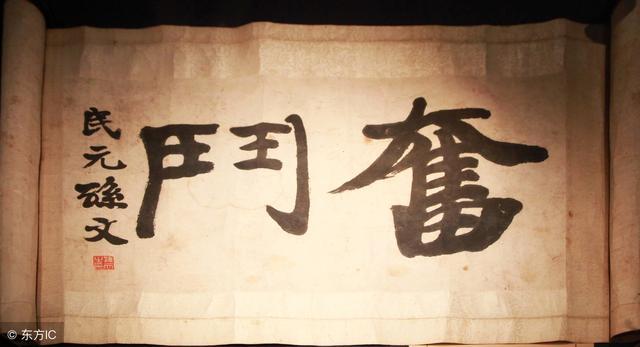 奮鬥
民元孫文
© 东方IC